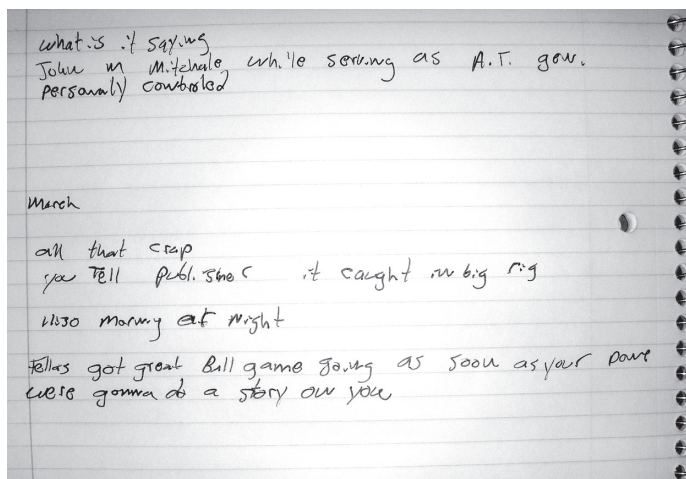 what is it saying
John m Mitchale while serving as A.T. gen.
personaly controled
March
all that crap
you Tell publisher it caught in big rig
11:30 morning at night
Fellas got great Ball game going as soon as your done
were gonna do a story on you